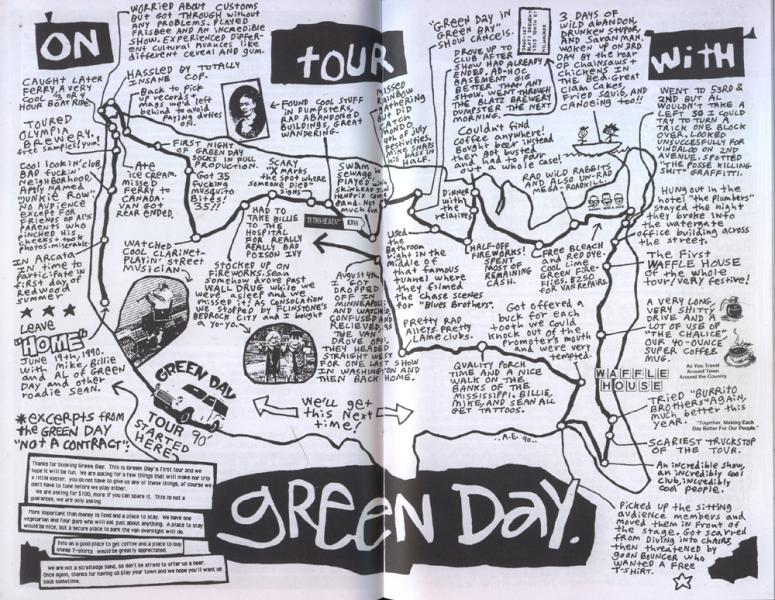 ON
tOUR
WitH
WORRIED ABOUT CUSTOMS
BUT GOT THROUGH WITHOUT
ANY PROBLEMS. PLAYED
FRISBEE AND AN INCREDIBLE
SHOW. EXPERIENCED DIFFER-
ENT CULTURAL NUANCES LIKE
DIFFERENT CEREAL AND GUM.
CAUGHT LATER
FERRY, A VERY
COOL
HOUR BOAT RIDE.
HASSLED BY TOTALLY
INSANE COP.
Back to pick
up records
Mags we'd left
behind to avoid
Paying duties
on.
FOUND COOL STUFF
IN DUMPSTERS,
RAD ABANDONED
BUILDINGS, GREAT
WANDERING.
TOURED
OLYMPIA
BREWERY.
free samples! yum!
Cool lookin' club,
BAD fuckin'
Neighborhood,
APTLY NAMED
"JUNKIE ROW"
NO AUDIENCE
EXCEPT FOR
FRIENDS OF AL'S
PARENTS WHO
PINCHED HIS
cheeks + took
Photos-miserable
In ARCATA
IN time to
Participate in
first day of
Redwood
Summer
ATE
ICE CREAM.
MISSED
FERRY to
CANADA-
VAN GOT
REAR ENDED.
FIRST NIGHT
GREEN DAY
SUCKS IN FULL
PRODUCTION.
Got 35
fucking
Mosquito
Bites!
'35!!
SCARY
"X MARKS
the SPOT WHERE
someone Died"
signs
Swam in
sewage.
Played with
skinhead
HANDPUPPET
Band. Not
much fun
MISSED
RAINBOW
GATHERING
but did
CATCH
MONDO
4th of July
FESTIVITIES.
"GREEN DAY IN
GREEN BAY"
SHOW CANCELS.
DROVE UP TO
CLUB AFTER
SHOW HAD ALREADY
ENDED, AD-HOC
BASEMENT GIG
BETTER THAN ANY
SHOW. WENT THROUGH
THE BLATZ BREWERY
DUMPSTER THE NEXT
MORNING.
3 DAYS OF
WILD ABANDON,
DRUNKEN STUPOR,
AND SARAN MAN,
WOKEN UP ON 3RD
DAY BY the ROAR
OF CHAINSAWS +
CHICKENS IN
THE BED. GREAT
CLAM CAKES,
FRIED SQUID, AND
CANOEING too!!
Couldn't find
coffee anywhere!
Bought beer instead
then got busted
and had to pour
out a whole case!
RAD WILD RABBITS
AND ALSO UN-RAD
MEGA-ROADKILL.
WENT TO 53RD &
2ND BUT AL
WOULDN'T TAKE A
LEFT SO I COULD
TRY TO TURN A
TRICK ONE BLOCK
OVER. LOOKED
UNSUCCESSFULLY FOR
VINDALOO ON 2ND
AVENUE. SPOTTED
"THE POSSE KILLING
SHIT" GRAFFITI.
HUNG OUT IN the
HOTEL "the Plumbers"
STAYED the NIGHT
they BROKE INTO
the WATERGATE
office building across
the street.
The First
WAFFLE HOUSE
OF the whole
tour/very festive!
A VERY LONG,
VERY SHITTY
DRIVE AND A
LOT OF USE OF
"THE CHALICE",
OUR 40-OUNCE
SUPER COFFEE
MUG.
As You Travel
Around Town
Around the Country
HAD TO
TAKE BILLIE
to the
HOSPITAL
FOR REALLY
REALLY BAD
POISON IVY
"IS THIS HEAVEN?"
IOWA
Dinner
with
relatives
HALF-OFF
FIREWORKS!
SPENT
MOST OF
REMAINING
CASH.
FREE BLEACH
AND RED DYE.
COOL LIME
GREEN FIRE-
FLIES. $250
FOR VAN REPAIRS.
USED the
BATHROOM
right in the
middle of
that famous
tunnel where
they filmed
the chase scenes
for "Blues Brothers".
WATCHED
COOL CLARINET-
PLAYIN' STREET
MUSICIAN
STOCKED UP ON
FIREWORKS. Sean
somehow drove past
WALL DRUG while we
were asleep and we
missed it! AS CONSOLATION
WE STOPPED BY FLINSTONE'S
BEDROCK CITY AND I bought
a yo-yo.
AUGUST 4th
I GOT
DROPPED
OFF IN
MINNEAPOLIS
AND WATCHED,
CONFUSED AND
RELIEVED, AS
THE VAN
DROVE OFF.
THEY HEADED
STRAIGHT WEST
FOR ONE LAST SHOW
IN WASHINGTON AND
THEN BACK HOME.
PRETTY RAD
Alleys. Pretty
LAME clubs.
Got offered a
buck for each
tooth we could
knock out of the
promoter's mouth
and were very
tempted.
QUALITY PORCH
TIME AND A NICE
WALK ON THE
BANKS OF THE
MISSISSIPPI. BILLIE,
MIKE AND SEAN ALL
GET TATTOOS.
WAFFLE
HOUSE
TRIED "BURRITO
BROTHERS" AGAIN,
MUCH better this
YEAR.
"Together, Making Each
Day Better For Our People."
SCARIEST TRUCKSTOP
OF THE TOUR.
An incredible show,
an incredibly cool
club, incredibly
cool people.
★ ★ ★
LEAVE
"HOME"
JUNE 19th, 1990.
With Mike, Billie
and AL of GREEN
DAY and other
roadie SEAN.
GREEN DAY
TOUR 90'
STARTED
HERE
We'll get
this Next
time!
..A.E. 90..
*excerpts from
the GREEN DAY
"NOT A CONTRACT":
Thanks for booking Green Day. This is Green Day's first tour and we
hope it will be fun. We are asking for a few things that will make our trip
a little easier. you do not have to give us any of these things, of course we
don't have to tune before we play either.
We are asking for $100, more if you can spare it. This is not a
guarantee, we are only asking.
More important than money is food and a place to stay. We have one
vegetarian and four guys who will eat just about anything. A place to stay
would be nice, but a secure place to park the van overnight will do.
Info on a good place to get coffee and a place to buy
cheap T-shirts would be greatly appreciated.
We are not a straitedge band, so don't be afraid to offer us a beer.
Once again, thanks for having us play your town and we hope you'll want us
back sometime.
green DAY.
Picked up the sitting
audience members and
moved them in front of
the stage. Got scarred
from DIVING into CHAIRS,
then threatened by
goon BOUNCER who
WANTED A FREE
T-SHIRT.